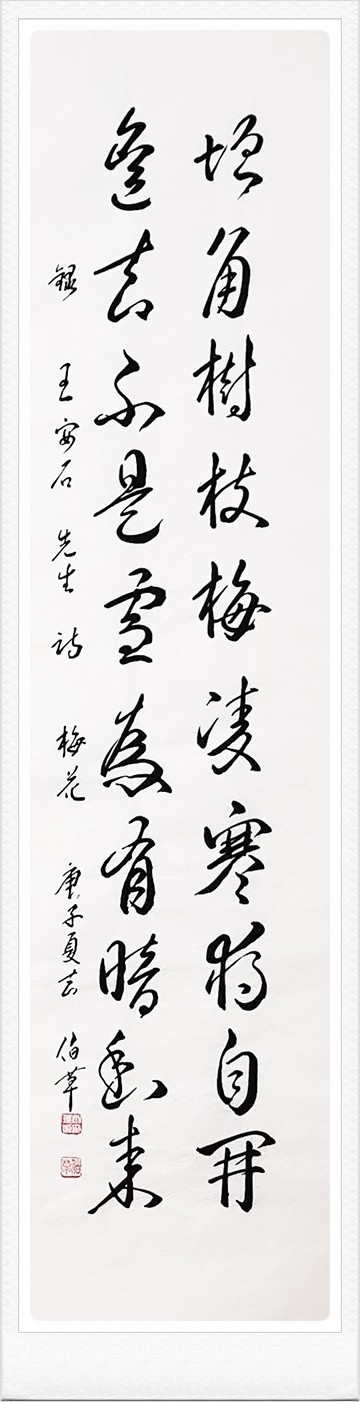 墙角樹枝梅凌寒独自開
遥知不是雪為有暗香来
録 王安石 先生 詩 梅花 庚子夏 伯草